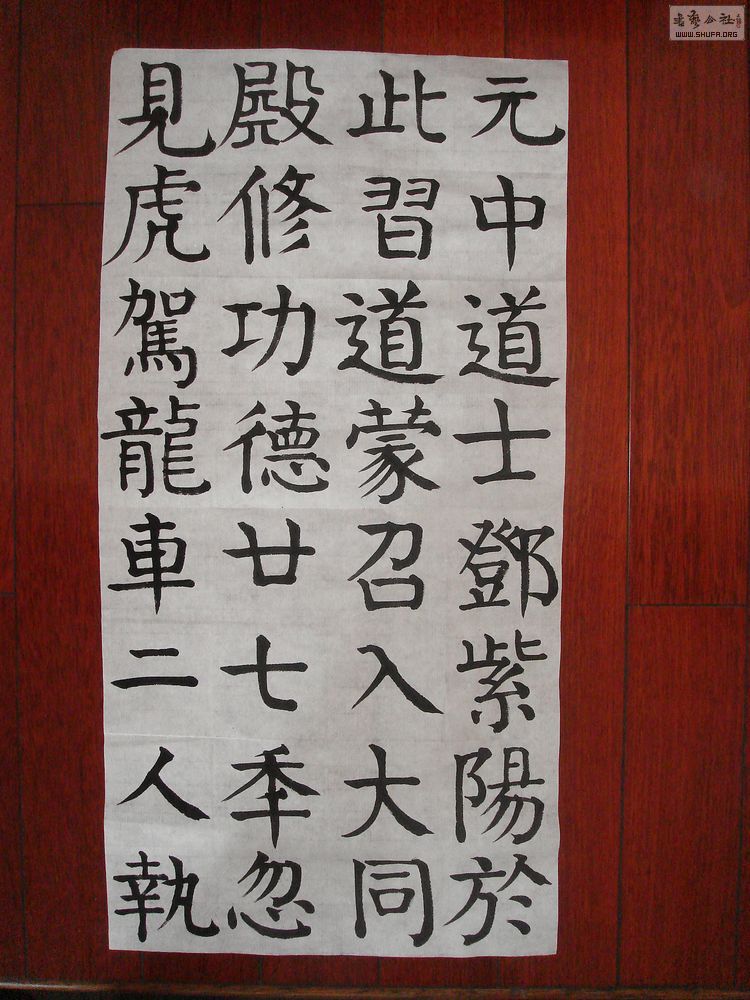 元中道士鄧紫陽於
此習道蒙召入大同
殿修功德廿七秊忽
見虎駕龍車二人執
WWW.SHUFA.ORG